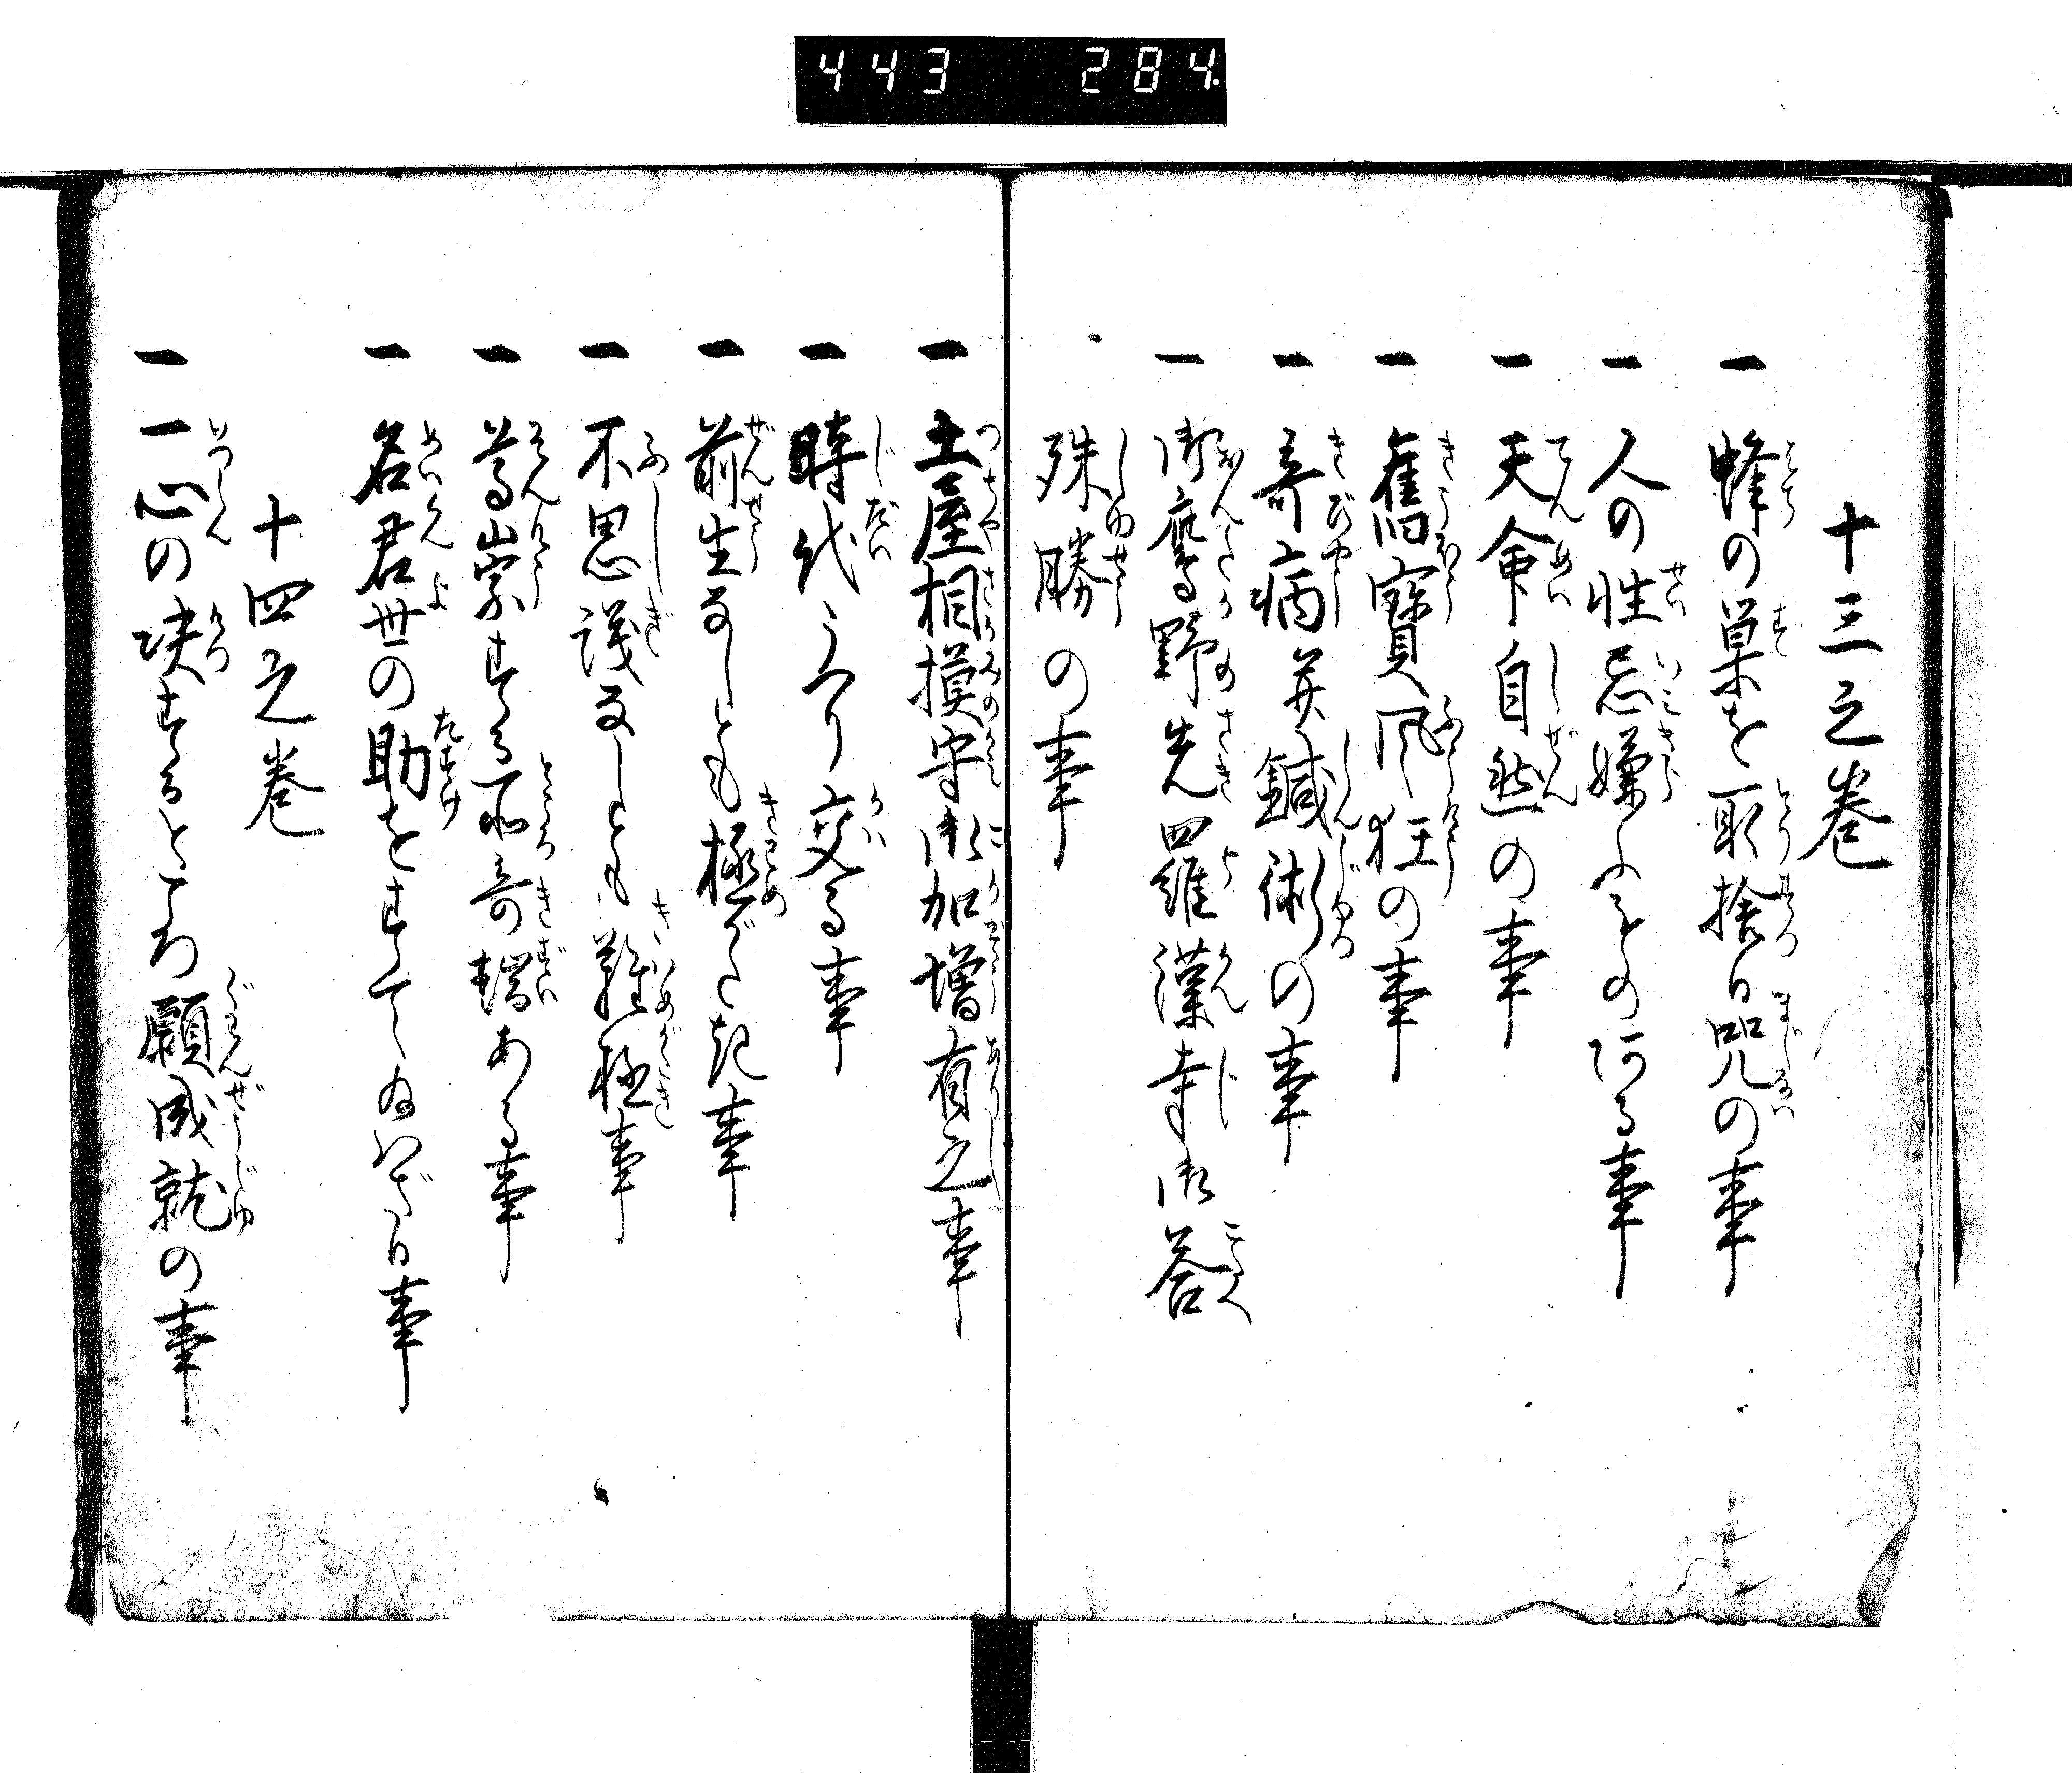 443 284
十三之巻
一 蜂の巣を取捨る呪の事
一 人の性忌嫌ふものある事
一 天命自然の事
一 舊寶風狂の事
一 奇病并鍼術の事
一 御鷹野先四羅漢寺御答
殊勝の事
一 土屋相摸守御加増有之事
一 時代うつり交る事
一 前生なしとも極がたき事
一 不思議なしとも難極事
一 尊崇する所奇瑞ある事
一 名君世の助をすて給はざる事
十四之巻
一 一心の決するところ願成就の事